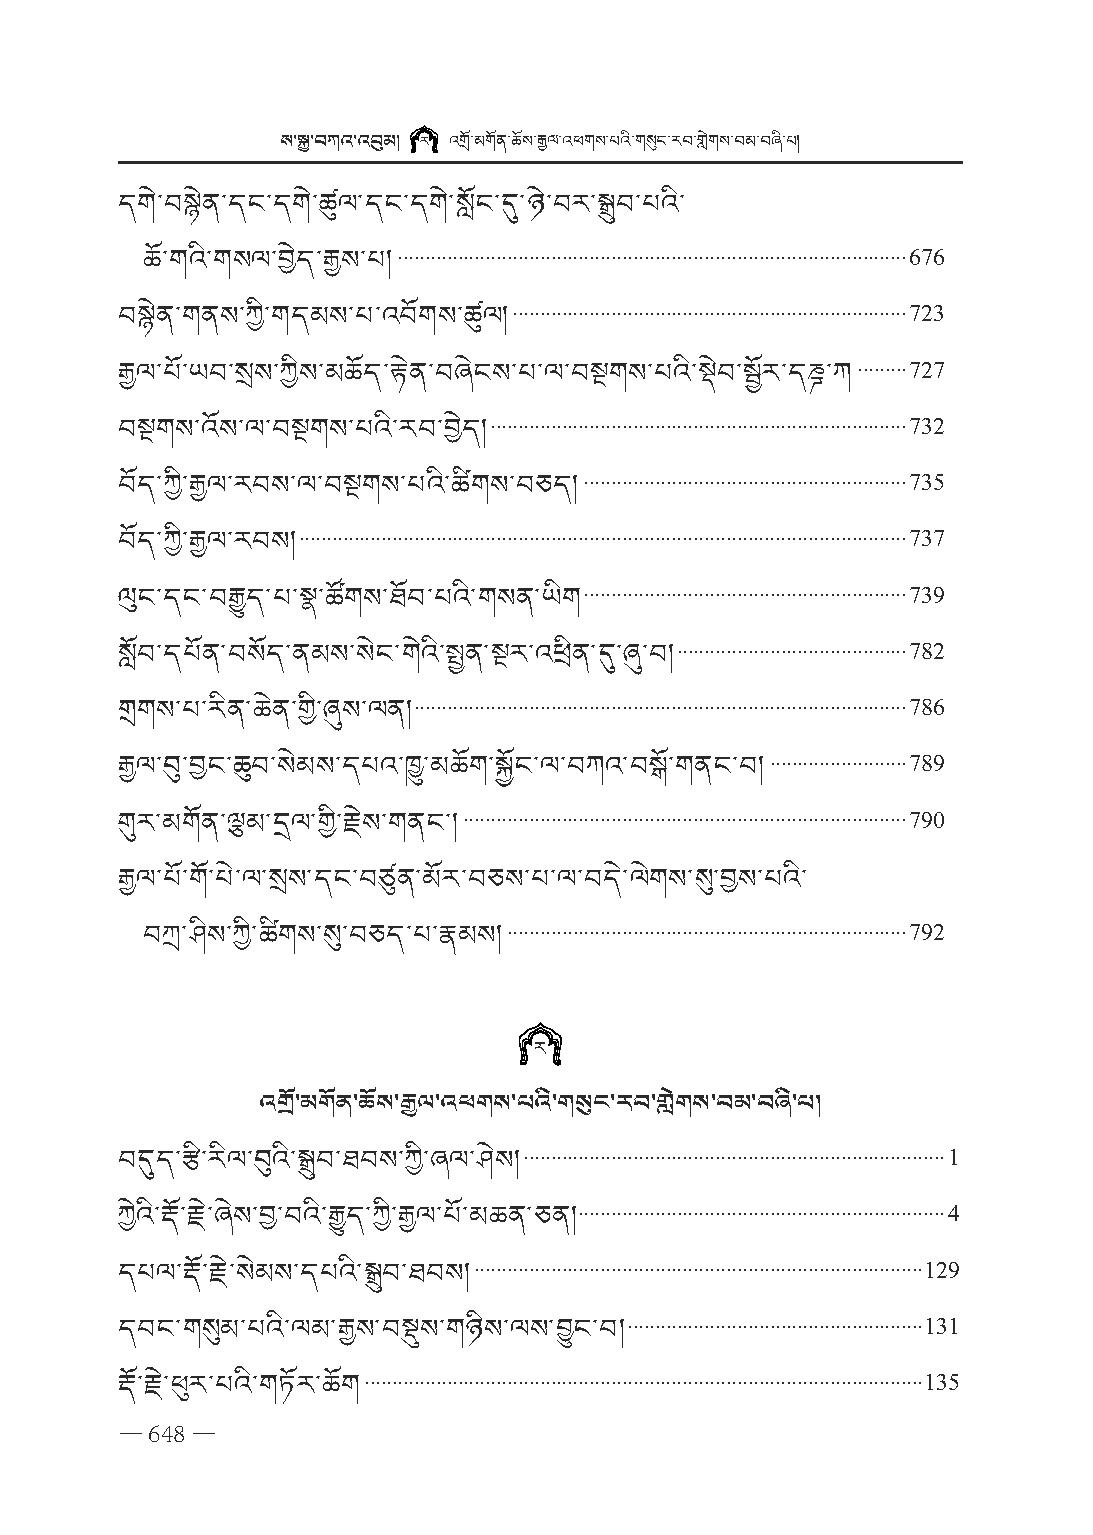 ས་སྐྱ་བཀའ་འབུམ། ར འགྲོ་མགོན་ཆོས་རྒྱལ་འཕགས་པའི་གསུང་རབ་གླེགས་བམ་བཞི་པ།
དགེ་བསྙེན་དང་དགེ་ཚུལ་དང་དགེ་སློང་དུ་ཉེ་བར་སྒྲུབ་པའི་
ཆོ་གའི་གསལ་བྱེད་རྒྱས་པ། 676
བསྙེན་གནས་ཀྱི་གདམས་པ་འབོགས་ཚུལ། 723
རྒྱལ་པོ་ཡབ་སྲས་ཀྱིས་མཆོད་རྟེན་བཞེངས་པ་ལ་བསྔགས་པའི་སྡེབ་སྦྱོར་དཎྜ་ཀ 727
བསྔགས་འོས་ལ་བསྔགས་པའི་རབ་བྱེད། 732
བོད་ཀྱི་རྒྱལ་རབས་ལ་བསྔགས་པའི་ཚིགས་བཅད། 735
བོད་ཀྱི་རྒྱལ་རབས། 737
ལུང་དང་བརྒྱུད་པ་སྣ་ཚོགས་ཐོབ་པའི་གསན་ཡིག 739
སློབ་དཔོན་བསོད་ནམས་སེང་གེའི་སྤྱན་སྔར་འཕྲིན་དུ་ཞུ་བ། 782
གྲགས་པ་རིན་ཆེན་གྱི་ཞུས་ལན། 786
རྒྱལ་བུ་བྱང་ཆུབ་སེམས་དཔའ་ཁྱུ་མཆོག་སྐྱོང་ལ་བཀའ་བསྒོ་གནང་བ། 789
གུར་མགོན་ལྕམ་དྲལ་གྱི་རྗེས་གནང་། 790
རྒྱལ་པོ་གོ་པེ་ལ་སྲས་དང་བཙུན་མོར་བཅས་པ་ལ་བདེ་ལེགས་སུ་བྱས་པའི་
བཀྲ་ཤིས་ཀྱི་ཚིགས་སུ་བཅད་པ་རྣམས། 792
ར
འགྲོ་མགོན་ཆོས་རྒྱལ་འཕགས་པའི་གསུང་རབ་གླེགས་བམ་བཞི་པ།
བདུད་རྩི་རིལ་བུའི་སྒྲུབ་ཐབས་ཀྱི་ཞལ་ཤེས། 1
ཀྱེའི་རྡོ་རྗེ་ཞེས་བྱ་བའི་རྒྱུད་ཀྱི་རྒྱལ་པོ་མཆན་ཅན། 4
དཔལ་རྡོ་རྗེ་སེམས་དཔའི་སྒྲུབ་ཐབས། 129
དབང་གསུམ་པའི་ལམ་རྒྱས་བསྡུས་གཉིས་ལས་བྱུང་བ། 131
རྡོ་རྗེ་ཕུར་པའི་གཏོར་ཆོག 135
— 648 —